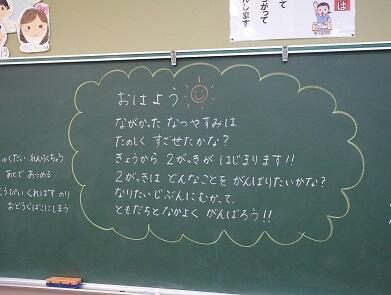 おはよう
ながかった なつやすみは
たのしく すごせたかな?
きょうから 2がっきが はじまります!!
2がっきは どんなことを がんばりたいかな?
なりたいじぶんにむかって、
ともだちとなかよく がんばろう!!
しゅくだい れんらくちょう
あとで あつめる
とうぴつ くれぱす のり
おどうぐばこにしまう
は
て
がって
します